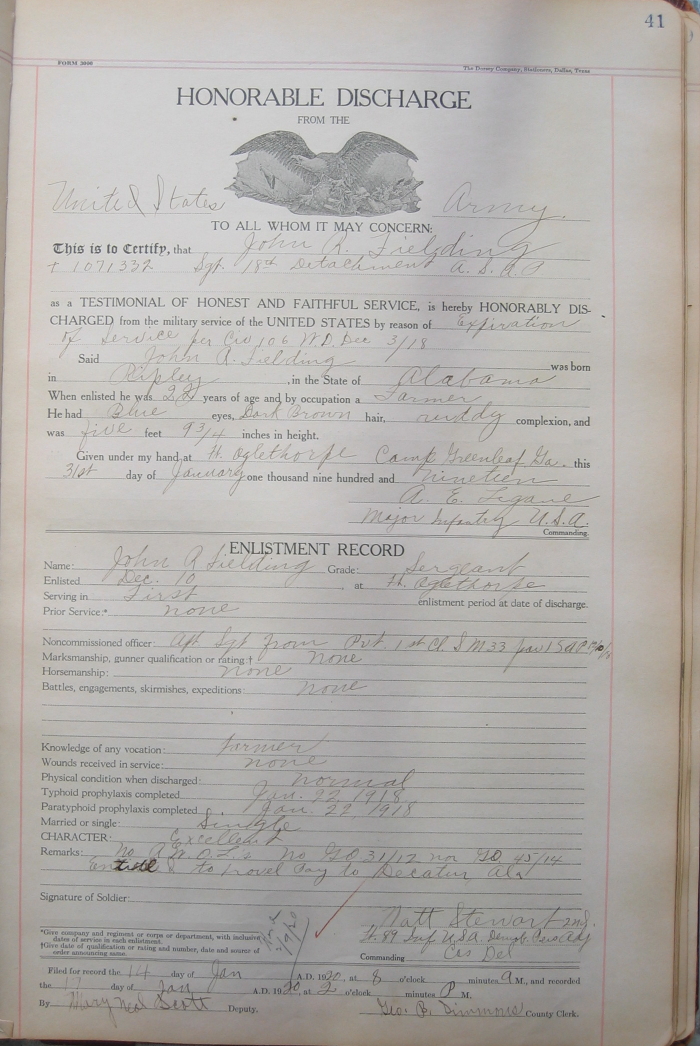 41
FORM 2000
The Dorsey Company, Stationers, Dallas, Texas
HONORABLE DISCHARGE
FROM THE
United States Army.
TO ALL WHOM IT MAY CONCERN:
This is to Certify, that John R. Fielding
+ 1071332 Sgt. 18th Detachment A. S. A. P
as a TESTIMONIAL OF HONEST AND FAITHFUL SERVICE, is hereby HONORABLY DIS-
CHARGED from the military service of the UNITED STATES by reason of Expiration
of Service per Cir 106 W.D. Dec 3/18
Said John A. Fielding was born
in Ripley, in the State of Alabama
When enlisted he was 22 years of age and by occupation a Farmer
He had Blue eyes, Dark Brown hair, ruddy complexion, and
was five feet 9 3/4 inches in height.
Given under my hand at Ft. Oglethorpe Camp Greenleaf Ga. this
31st day of January one thousand nine hundred and Nineteen
A. E.
Major Infantry U.S.A.
Commanding.
ENLISTMENT RECORD
Name: John A Fielding Grade: Sergeant
Enlisted Dec. 10 at Ft. Oglethorpe
Serving in First enlistment period at date of discharge.
Prior Service:* none
Noncommissioned officer: Apt Sgt from Pvt. 1st Cl S M 33
Marksmanship, gunner qualification or rating:† none
Horsemanship: none
Battles, engagements, skirmishes, expeditions: none
Knowledge of any vocation: Farmer
Wounds received in service: none
Physical condition when discharged: normal
Typhoid prophylaxis completed Jan. 22, 1918
Paratyphoid prophylaxis completed Jan. 22, 1918
Married or single: Single
CHARACTER: Excellent
Remarks: No A.W.O.L.s No GO 31/12 nor GO. 45/14
Entitled to travel Pay to Decatur, Ala
Signature of Soldier:
Natt Stewart
Lt. 89 Inf. U.S.A.
Commanding Cas Det
*Give company and regiment or corps or department, with inclusive
dates of service in each enlistment.
†Give date of qualification or rating and number, date and source of
order announcing same.
Filed for record the 14 day of Jan A.D. 1920, at 8 o'clock minutes A M., and recorded
the 17 day of Jan A.D. 1920, at 2 o'clock minutes P M.
By Mary Neal Scott Deputy. Geo. B. Simmons County Clerk.